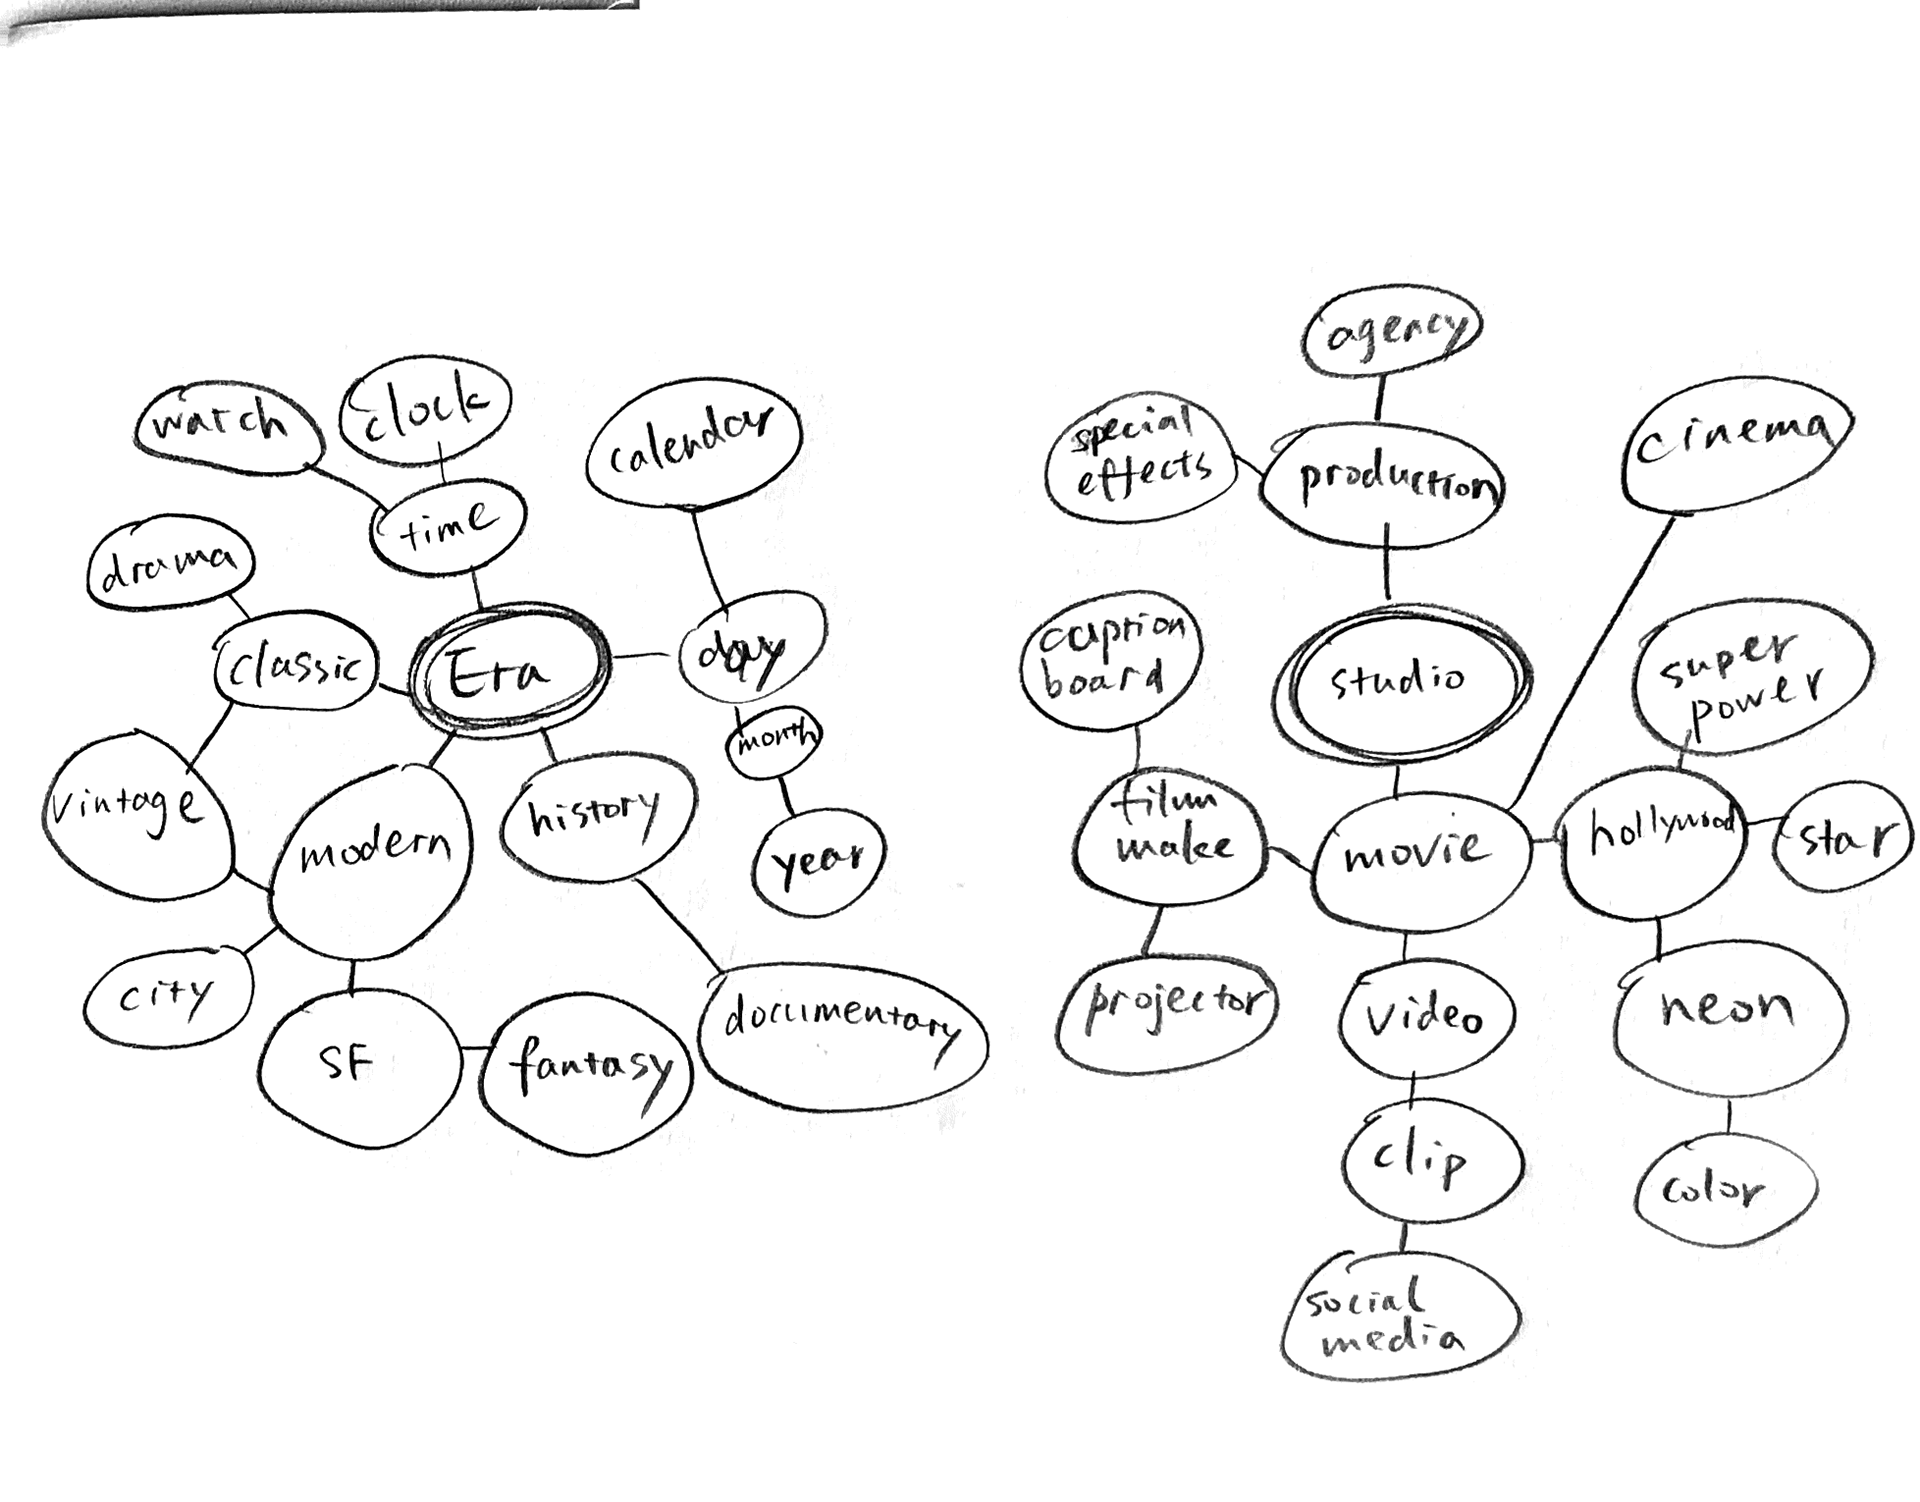 watch
clock
calendar
time
drama
classic
Era
day
month
vintage
modern
history
year
city
SF
fantasy
documentary
agency
special
effects
production
cinema
caption
board
studio
super
power
film
make
movie
hollywood
star
projector
video
neon
clip
color
social
media